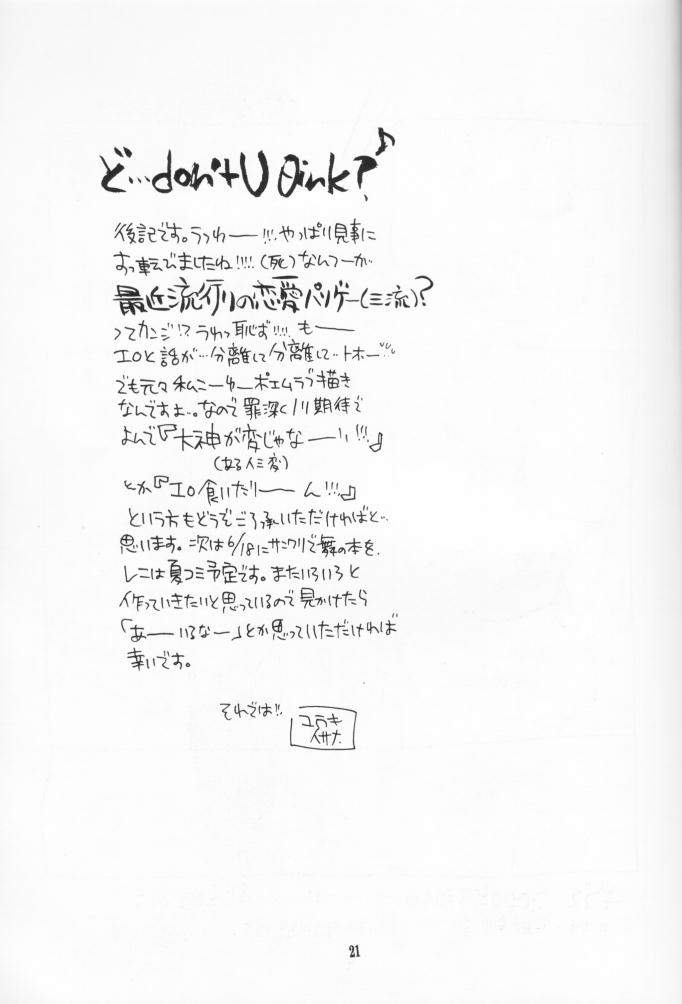 ど…don't U θink?♪
後記です。うっわーー!!! やっぱり見事に
すっ転でましたね!!!!(死)なんつーか
最近流行りの恋愛パリゲー(三流)?
ってカンジ!? うわっ恥ず!!!! もーー
エロと話が…分離して分離して…トホー
でも元々私こーゆーポエムラブ描き
なんですよ…。なので罪深く
よんで『大神が変じゃなーーい!!!』
とか『エロ食いたりーーん!!!』
という方もどうぞご了承いただければと…
思います。次は6/18にサンクリで舞の本を、
レニは夏コミ予定です。またいろいろと
作っていきたいと思っているので見かけたら
「あーいるなー」とか思っていただければ
幸いです。
それでは!!
ユラキ
イサナ
21